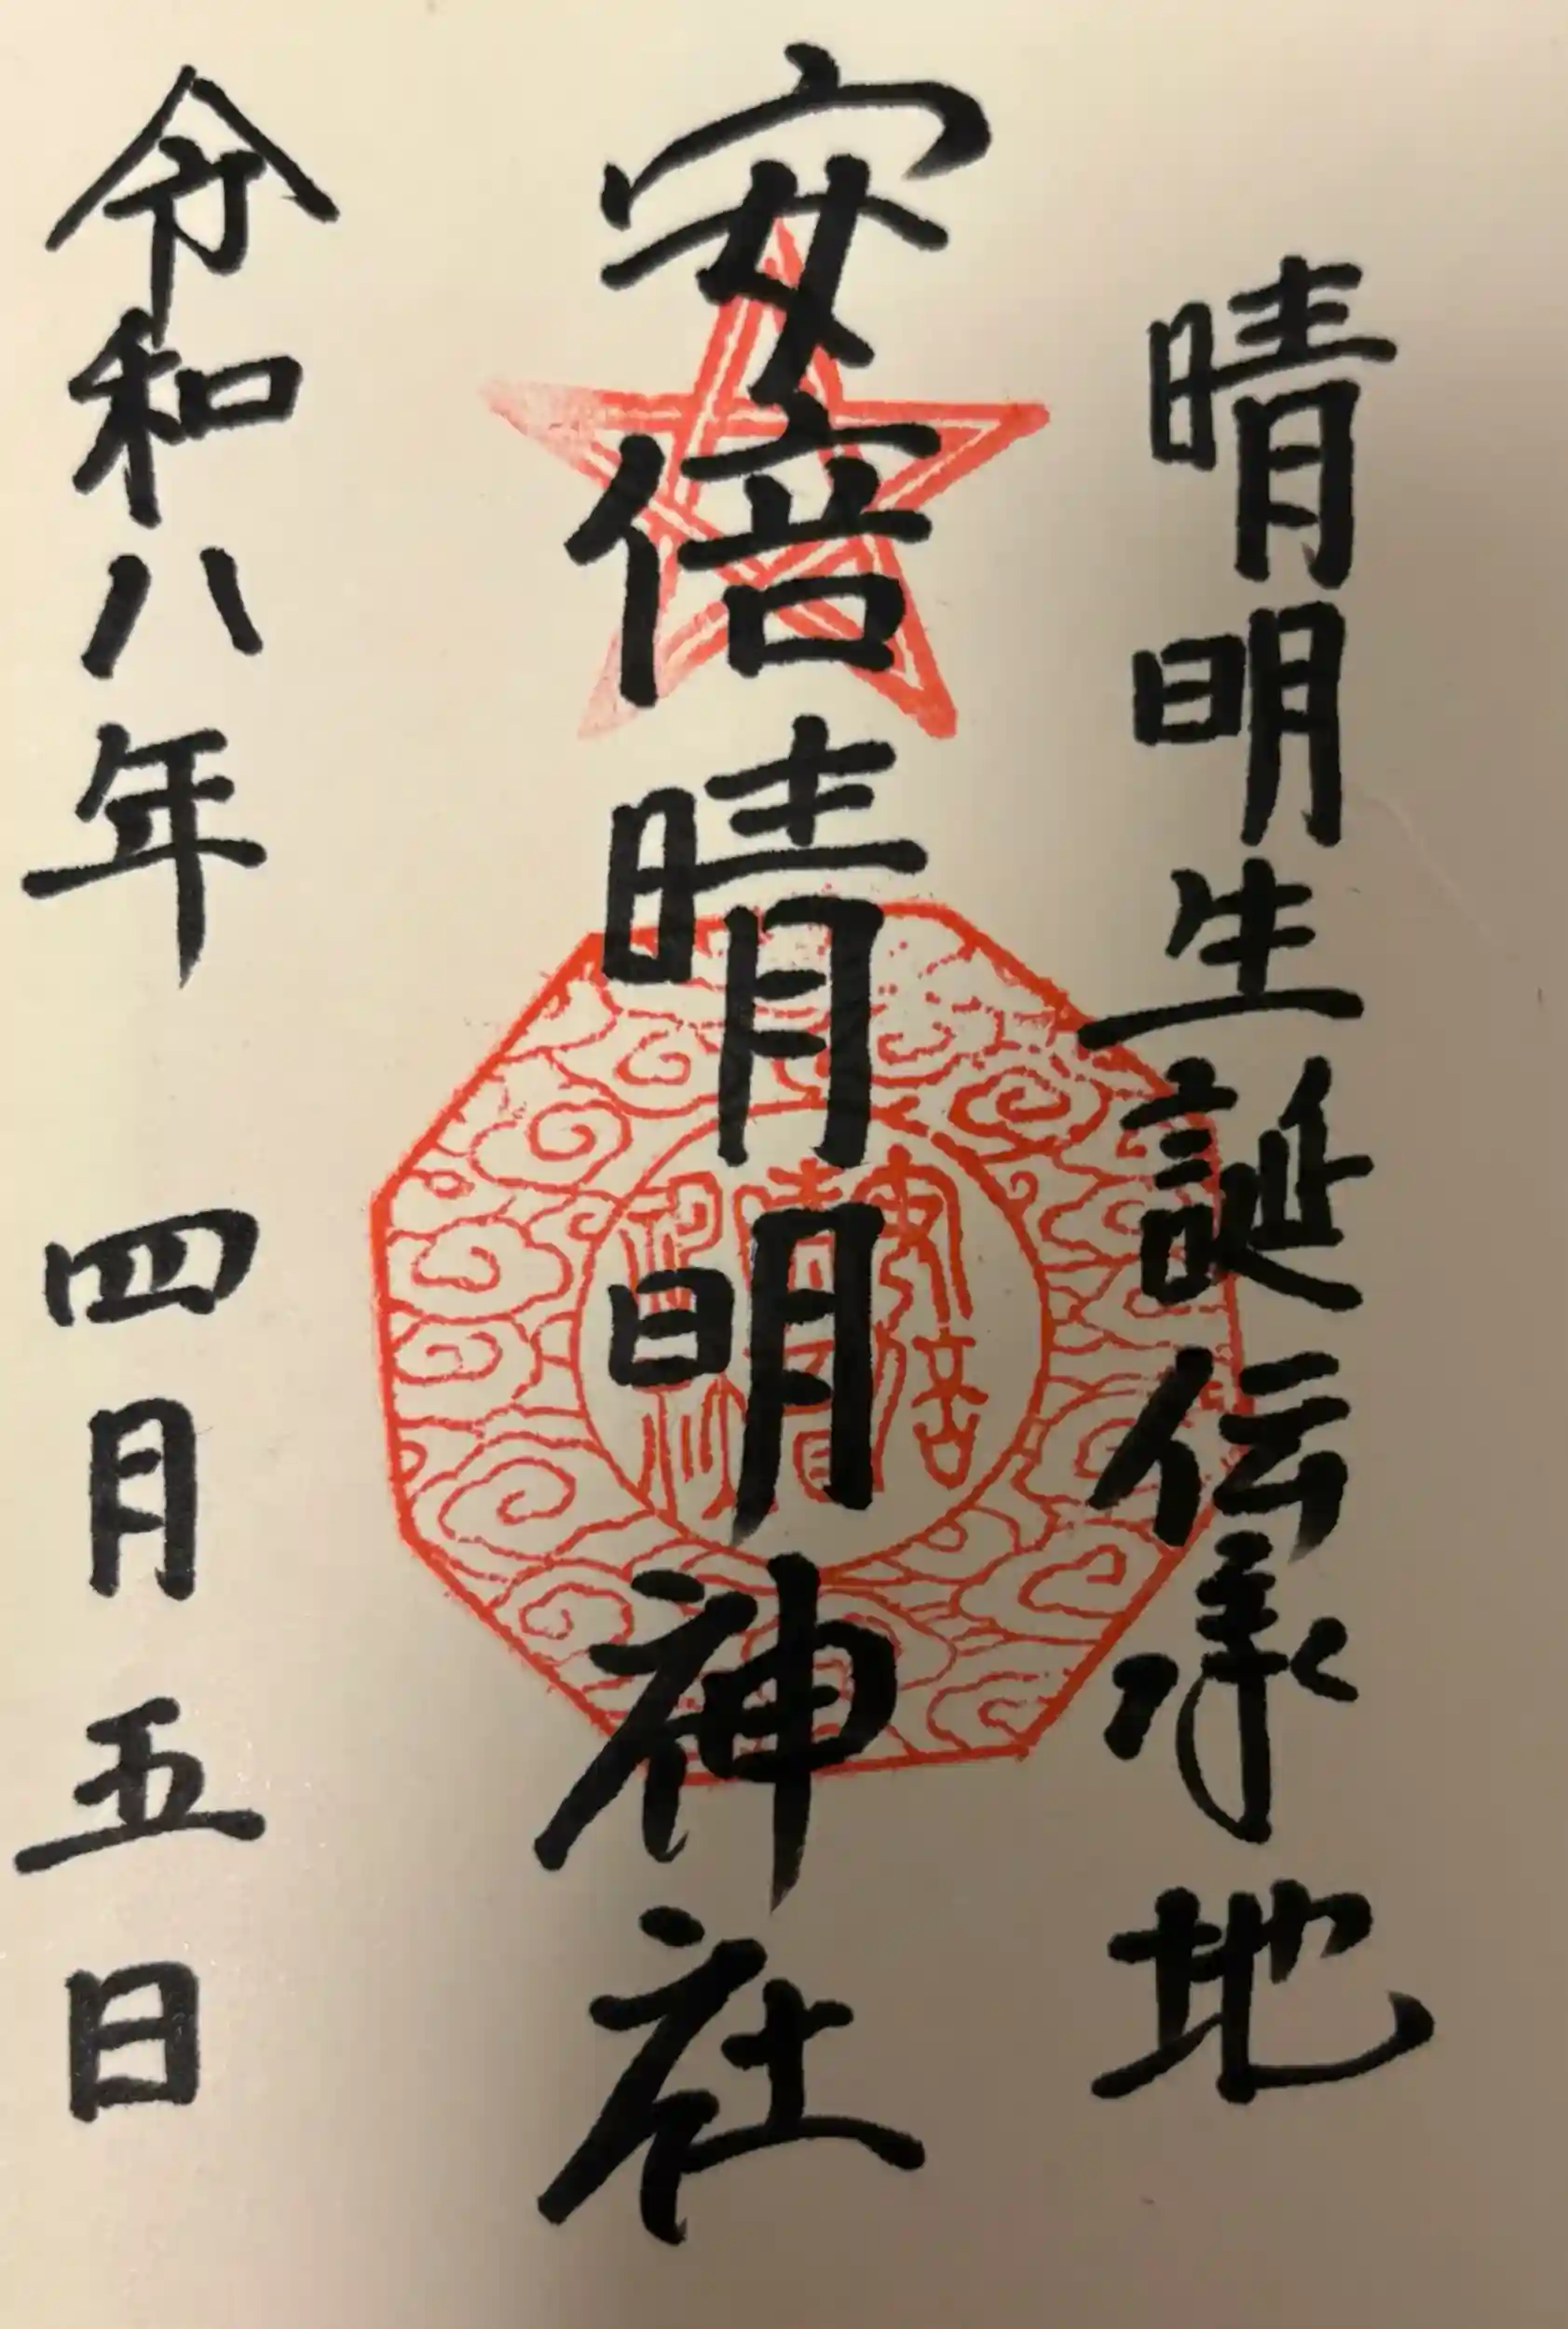 晴明生誕伝承地
安倍晴明神社
令和八年 四月五日